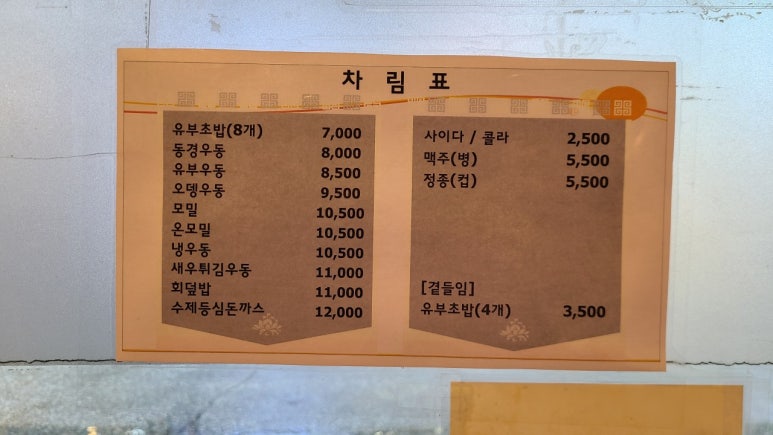 차 림 표
유부초밥(8개) 7,000
동경우동 8,000
유부우동 8,500
오뎅우동 9,500
모밀 10,500
온모밀 10,500
냉우동 10,500
새우튀김우동 11,000
회덮밥 11,000
수제등심돈까스 12,000
사이다 / 콜라 2,500
맥주(병) 5,500
정종(컵) 5,500
[곁들임]
유부초밥(4개) 3,500